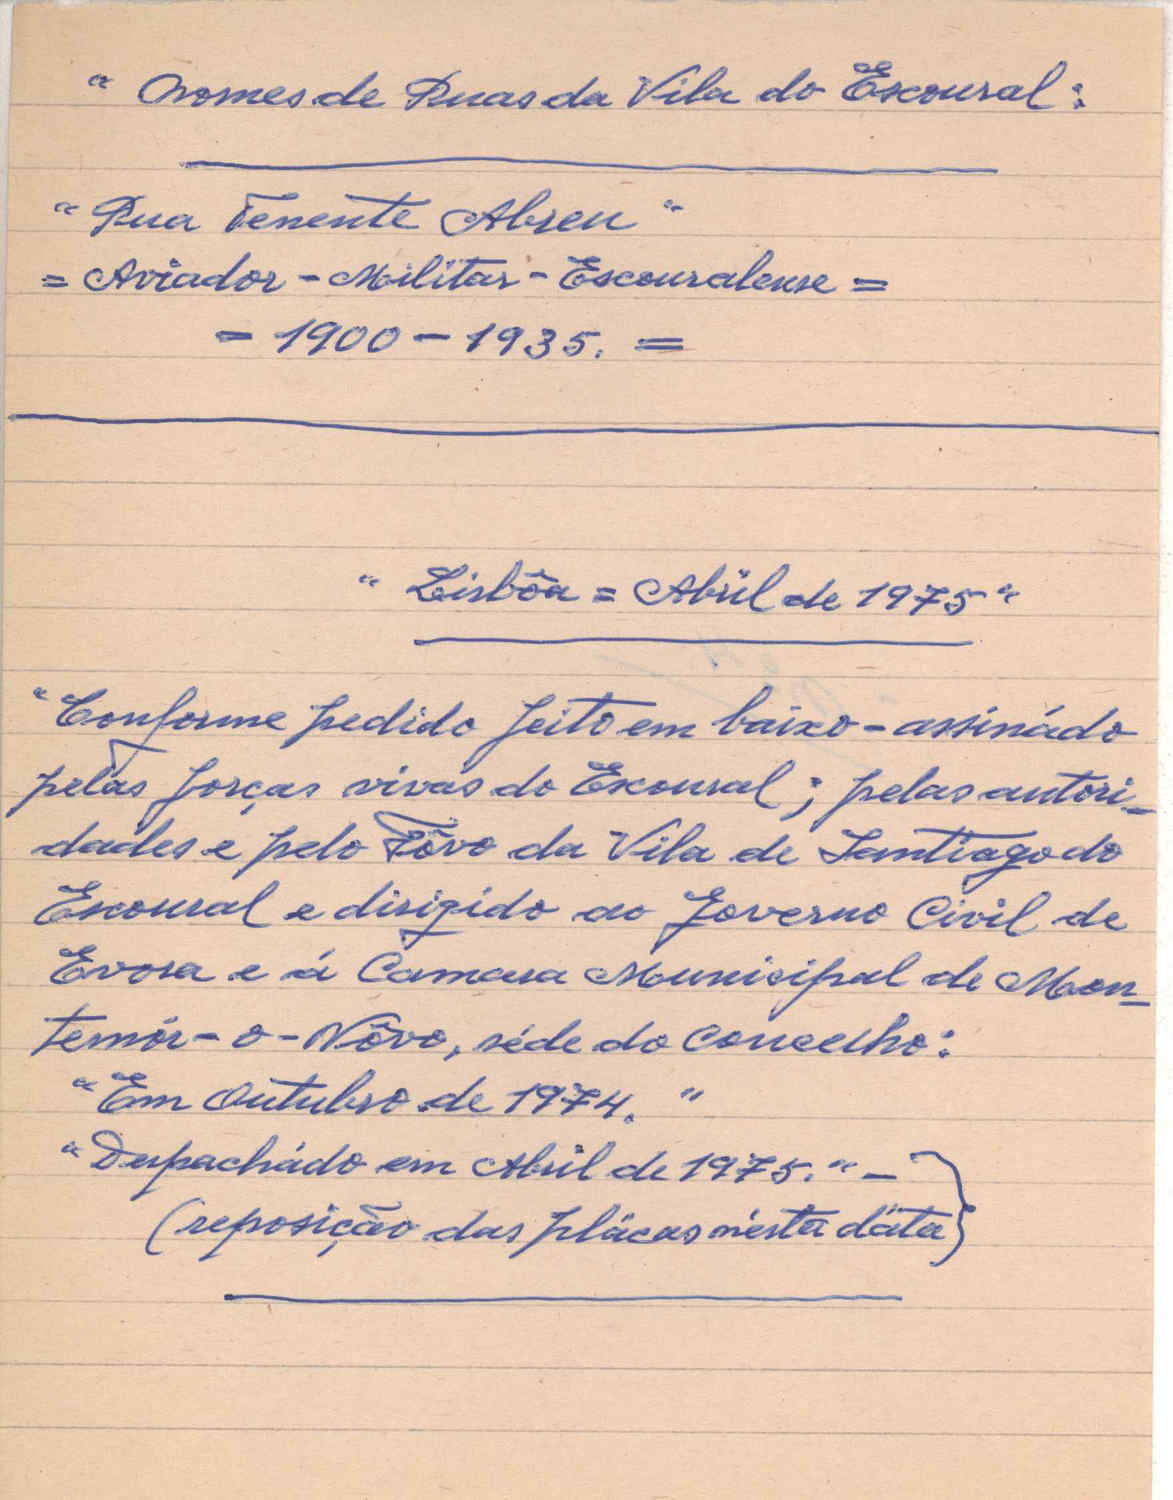 " Nomes de Ruas da Vila do Escoural:
" Rua Tenente Abreu "
= Aviador - Militar - Escouralense =
= 1900 - 1935. =
" Lisbôa = Abril de 1975 "
" Conforme pedido feito em baixo - assinádo
pelas forças vivas do Escoural; pelas autori-
dádes e pelo Pôvo da Vila de Santiago do
Escoural e dirigido ao Governo Civil de
Evora e á Camara Municipal de Mon-
temór - o - Nôvo, séde do Concelho:
" Em Outubro de 1974. "
" Despachádo em Abril de 1975. " -
(reposição das plácas nésta dáta)